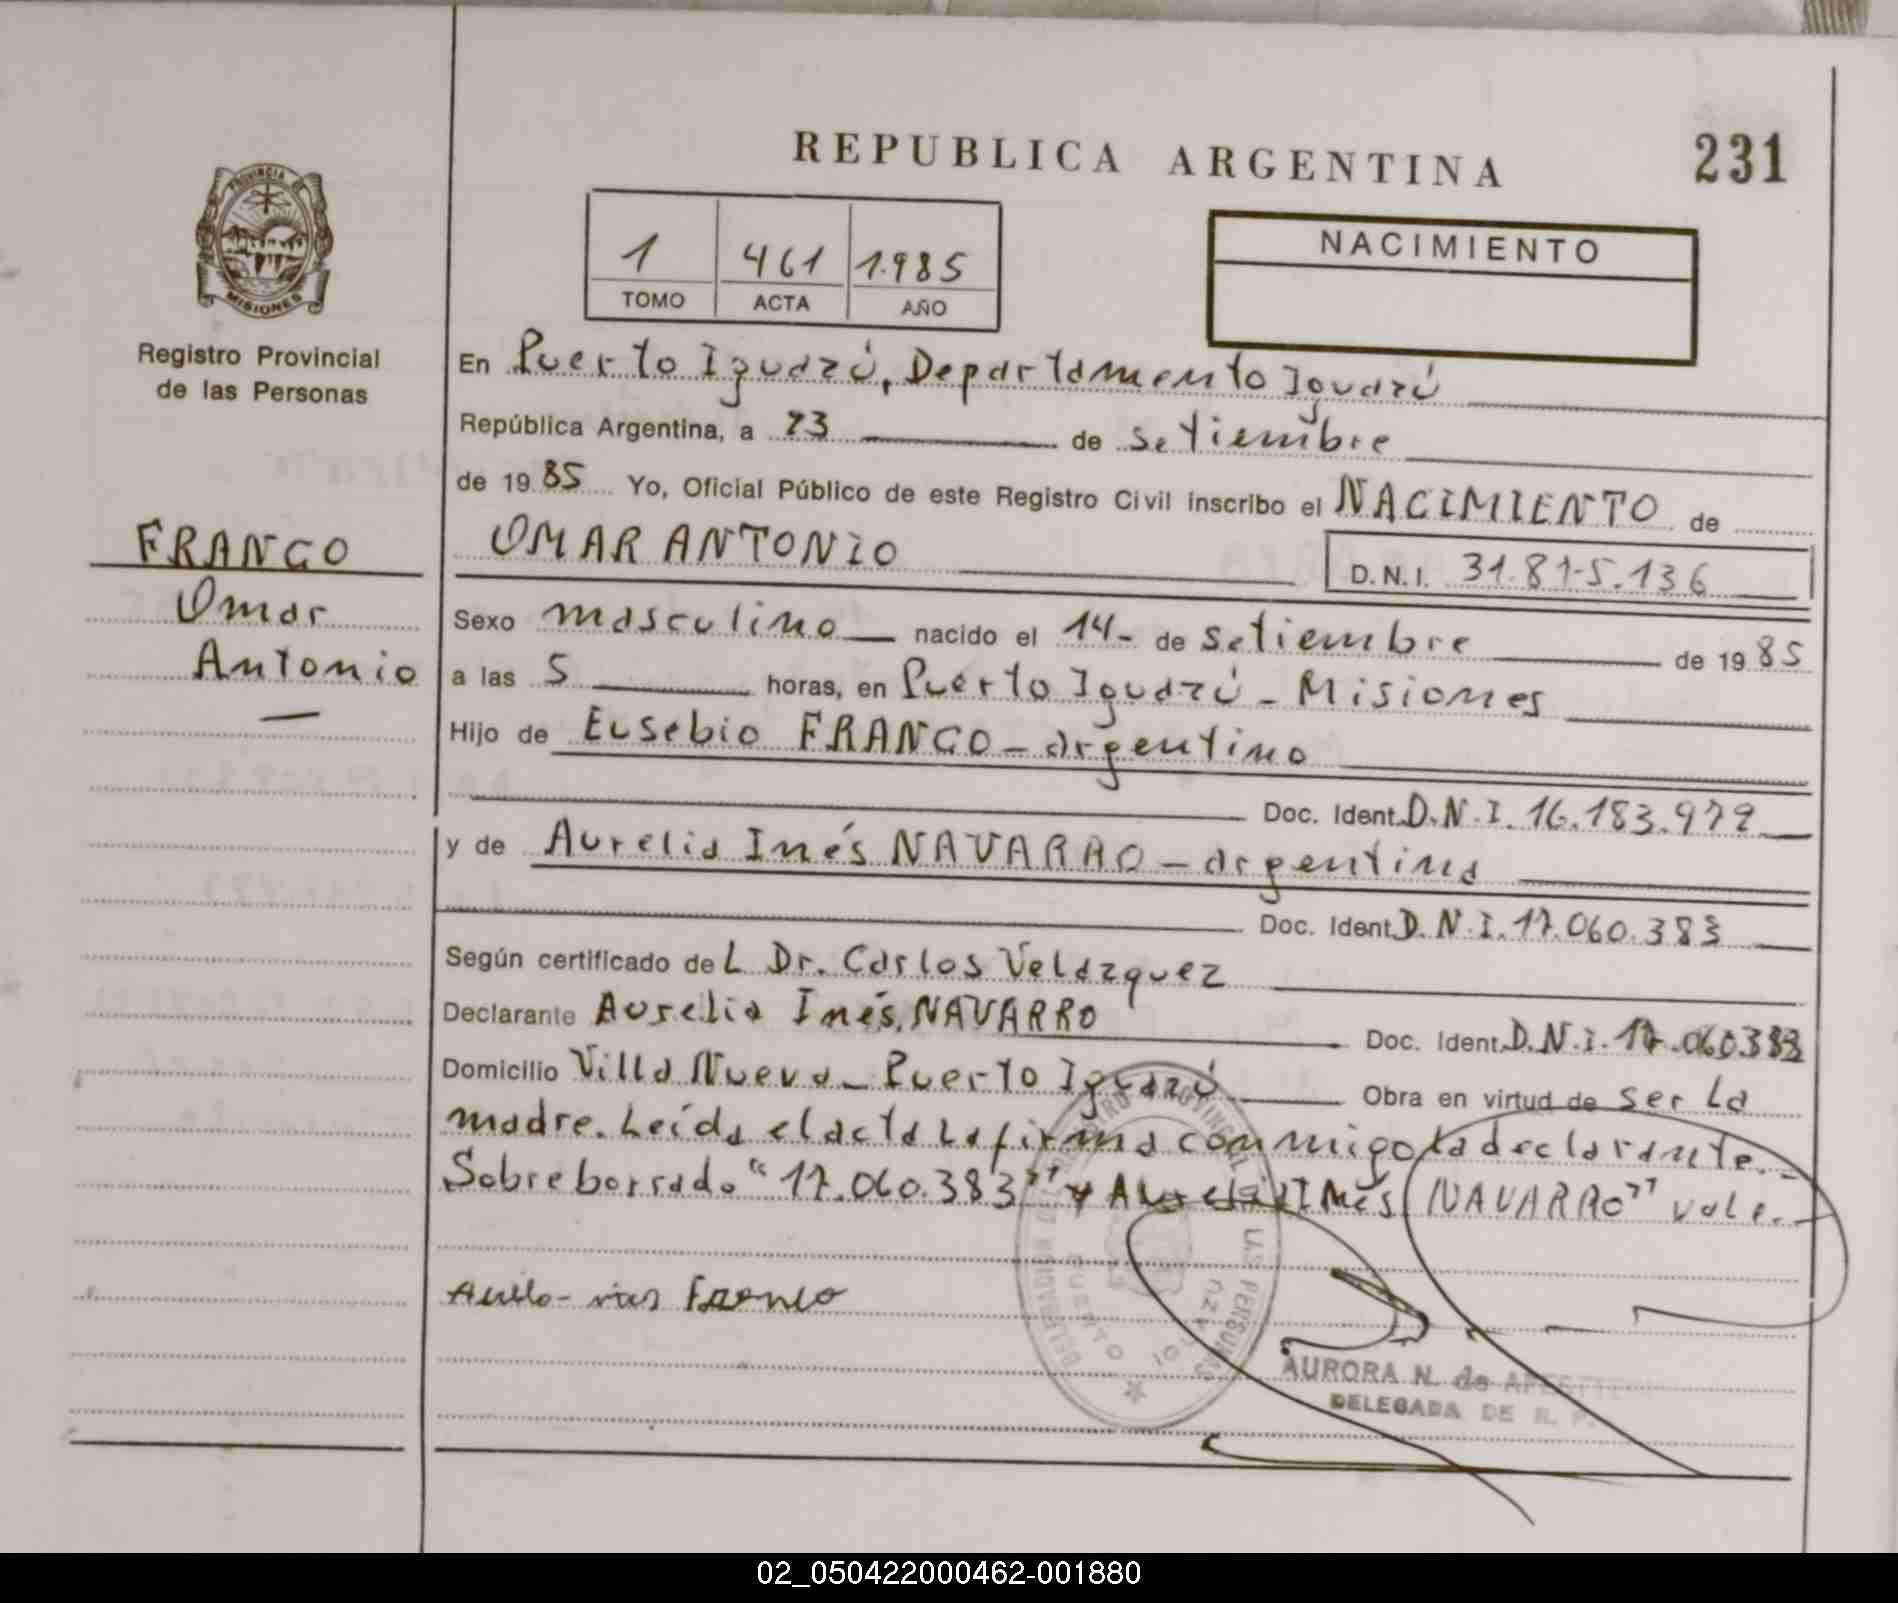 REPUBLICA ARGENTINA
231
PROVINCIA DE
MISIONES
Registro Provincial
de las Personas
1
461
1.985
TOMO
ACTA
AÑO
NACIMIENTO
En Puerto Iguazú, Departamento Iguazú
República Argentina, a 23 de setiembre
de 1985 Yo, Oficial Público de este Registro Civil inscribo el NACIMIENTO de
OMAR ANTONIO
D.N.I. 31.815.136
FRANCO
Omar
Antonio
Sexo masculino nacido el 14- de setiembre de 1985
a las 5 horas, en Puerto Iguazú - Misiones
Hijo de Eusebio FRANCO - argentino
Doc. Ident. D.N.I. 16.183.972
y de Aurelia Inés NAVARRO - argentina
Doc. Ident. D.N.I. 17.060.383
Según certificado deL Dr. Carlos Velazquez
Declarante Aurelia Inés NAVARRO Doc. Ident. D.N.I. 17.060383
Domicilio Villa Nueva - Puerto Iguazú Obra en virtud de ser La
madre. Leída el acta La firma conmigo la declarante.-
Sobreborrado "17.060.383" y Aurelia Inés NAVARRO" vale.-
DELEGACION DEL REGISTRO PROVINCIAL DE LAS PERSONAS
PUERTO IGUAZU
AURORA N. de
DELEGADA DE R. P.
02_050422000462-001880